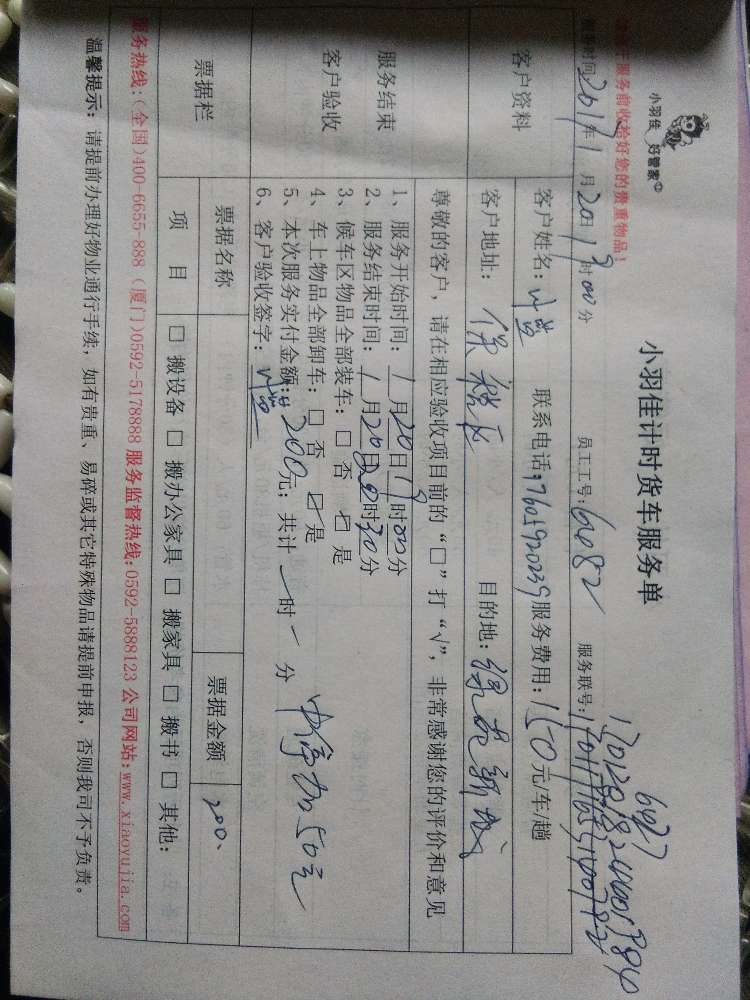 小羽佳 好管家
小羽佳计时货车服务单
服务前收拾好您的贵重物品！
时间：2017年1月20日19时00分 员工工号：6082 服务联号：
客户资料
客户姓名：叶 联系电话：17605920239 服务费用：150元/车/趟
客户地址：保税区 目的地：绿苑新城
尊敬的客户，请在相应验收项目前的“□”打“√”，非常感谢您的评价和意见
服务结束
客户验收
1、服务开始时间：1月20日19时00分
2、服务结束时间：1月20日20时30分
3、候车区物品全部装车：□ 否 ☑ 是
4、车上物品全部卸车：□ 否 ☑ 是
5、本次服务实付金额：200元；共计 一 时 一 分
中停加50元
6、客户验收签字：叶
票据栏
票据名称 票据金额 200、
项 目 □ 搬设备 □ 搬办公家具 □ 搬家具 □ 搬书 □ 其他：
服务热线：(全国)400-6655-888 (厦门)0592-5178888 服务监督热线：0592-5888123 公司网站：www.xiaoyujia.com
温馨提示：请提前办理好物业通行手续，如有贵重、易碎或其它特殊物品请提前申报，否则我司不予负责。